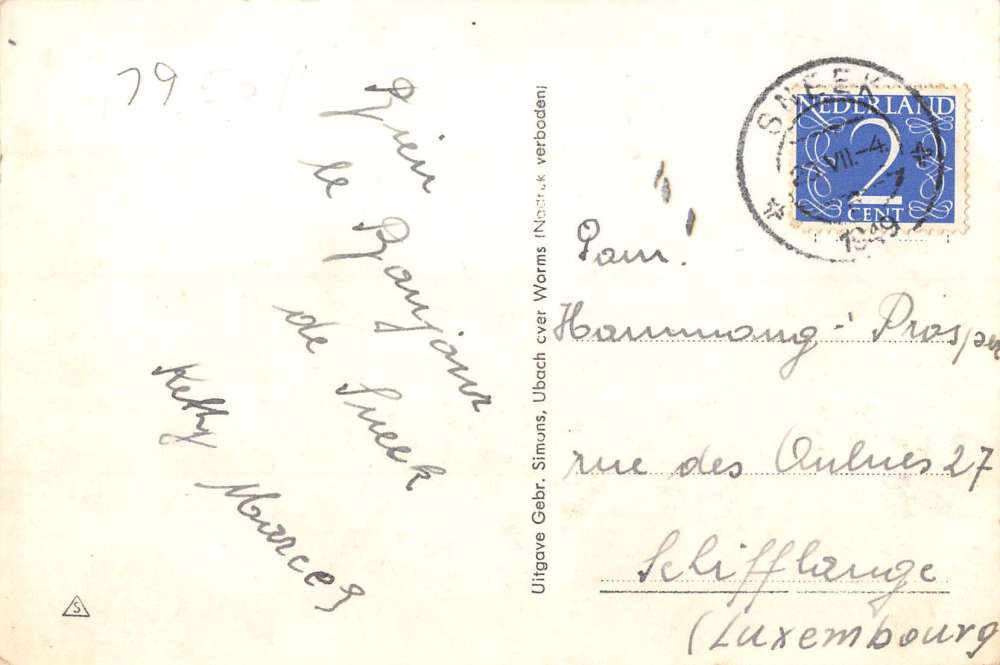 79
Bien
le Bonjour
de Sneek
Ketty Marceg
Uitgave Gebr. Simons, Ubach over Worms (Nadruk verboden)
S
SNEEK
VII.-4
1949
NEDERLAND
2
CENT
Fam.
Hammang-Prosper
rue des Aulnes 27
Schifflange
(Luxembourg